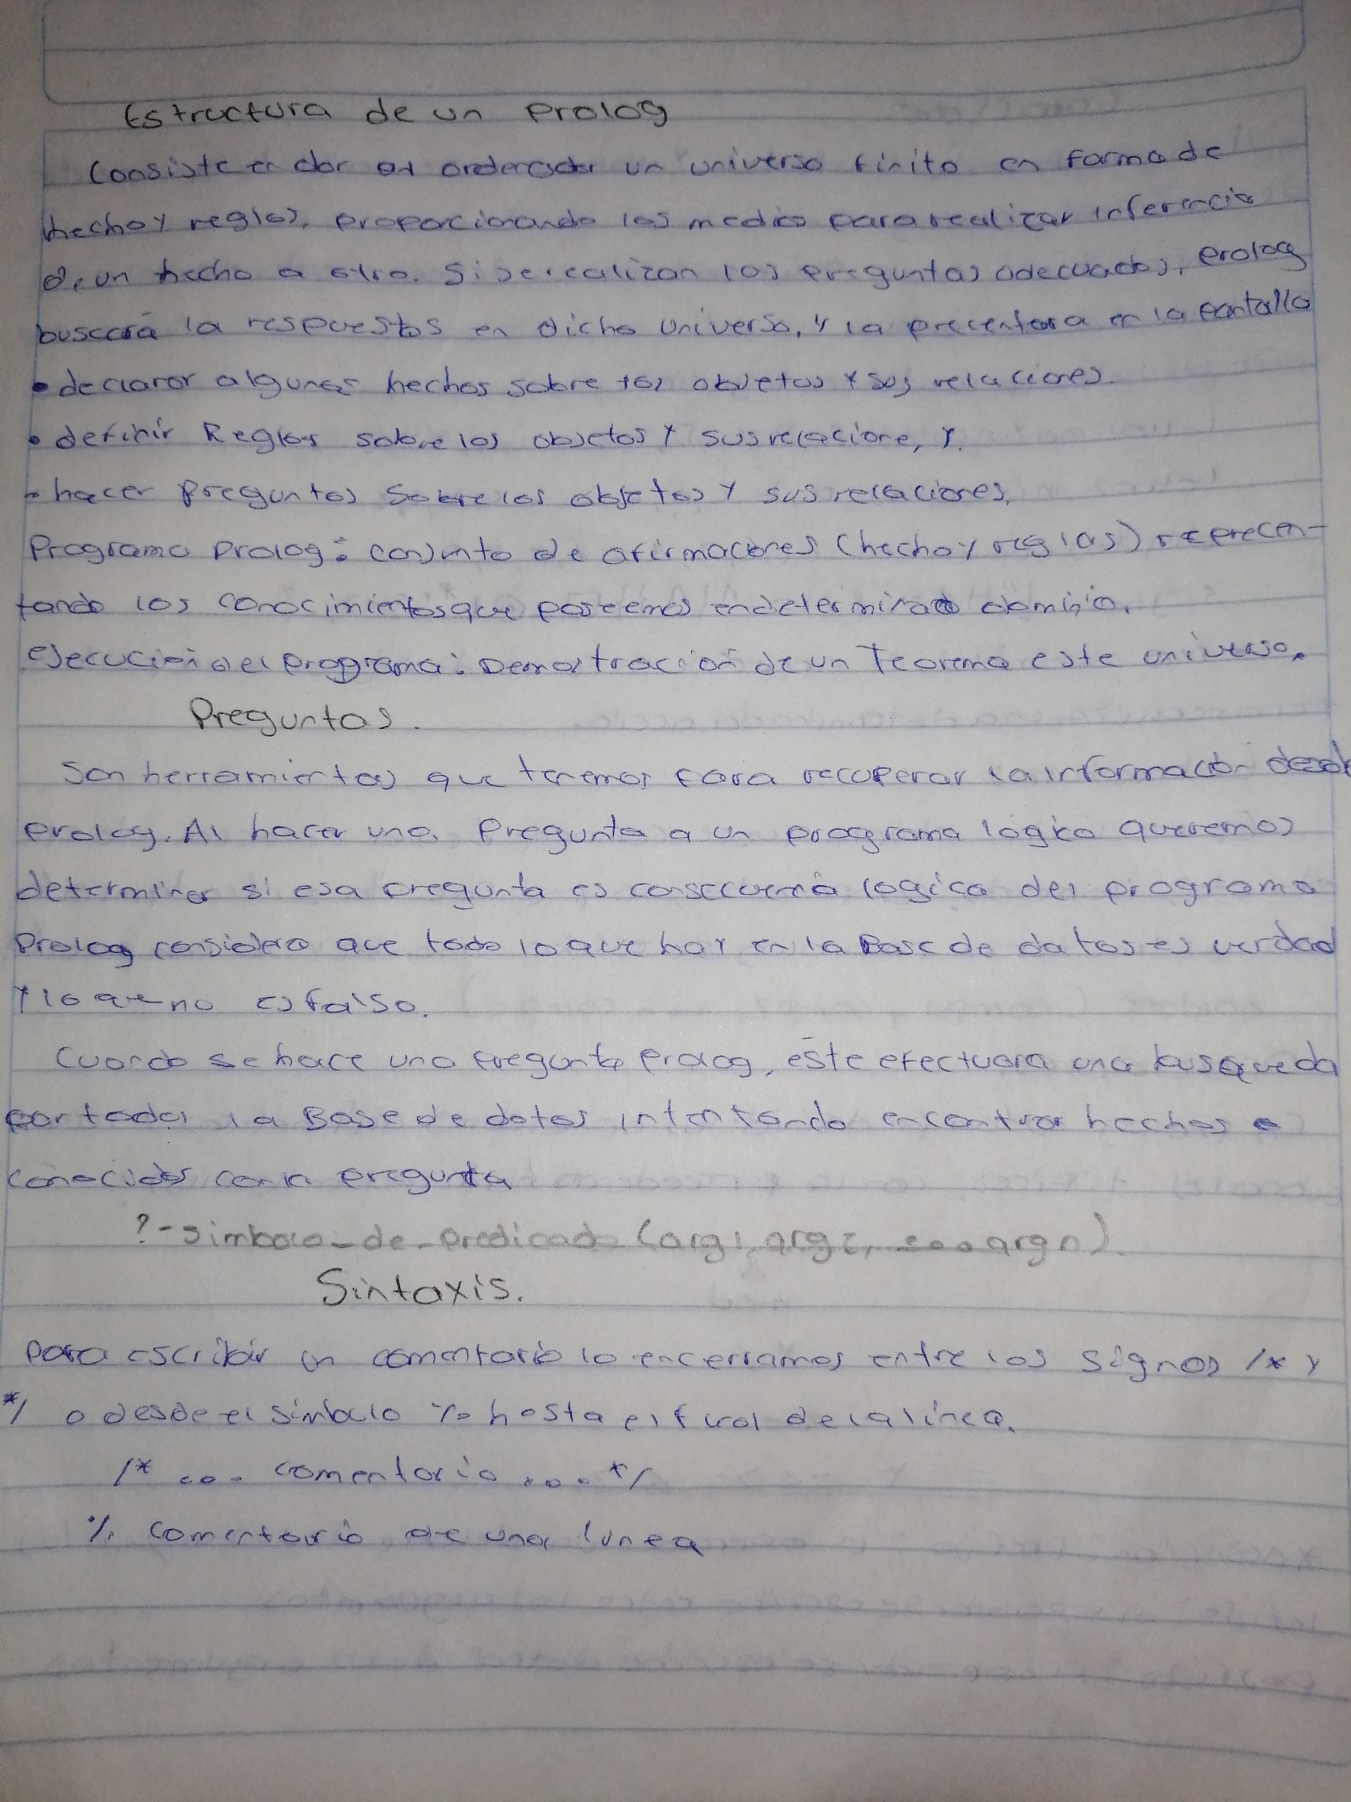 Estructura de un Prolog
Consiste en dar al ordenador un universo finito en forma de
hecho y reglas, proporcionando los medios para realizar inferencia
de un hecho a otro. Si se realizan las preguntas adecuados, prolog
buscará la respuestas en dicho universo, y la precentara en la pantalla
• declarar algunas hechos sobre los objetos y sus relaciones.
• definir Reglas sobre los objetos y sus relacione, y.
• hacer preguntas sobre los objetos y sus relaciones.
Programa prolog: conjunto de afirmaciones (hecho y reglas) reprecen-
tando los conocimientos que poseemos en determinado dominio.
ejecución del programa: Demostración de un Teorema este universo.
Preguntas.
Son herramientas que tenemos para recuperar la información desde
prolog. Al hacer una pregunta a un programa logico queremos
determinar si esa pregunta es consecuencia logica del programa
Prolog considera que todo lo que hay en la Base de datos es verdad
y lo que no es falso.
Cuando se hace una pregunta prolog, este efectuara una busqueda
por todas la Base de datos intentando encontrar hechos
conocidos con la pregunta
?-simbolo_de_predicado (arg1, arg2, ... argn).
Sintaxis.
Para escribir un comentario lo encerramos entre los signos /* y
*/ o desde el simbolo % hasta el final de la línea.
/* ... comentario ... */
% comentario de una linea